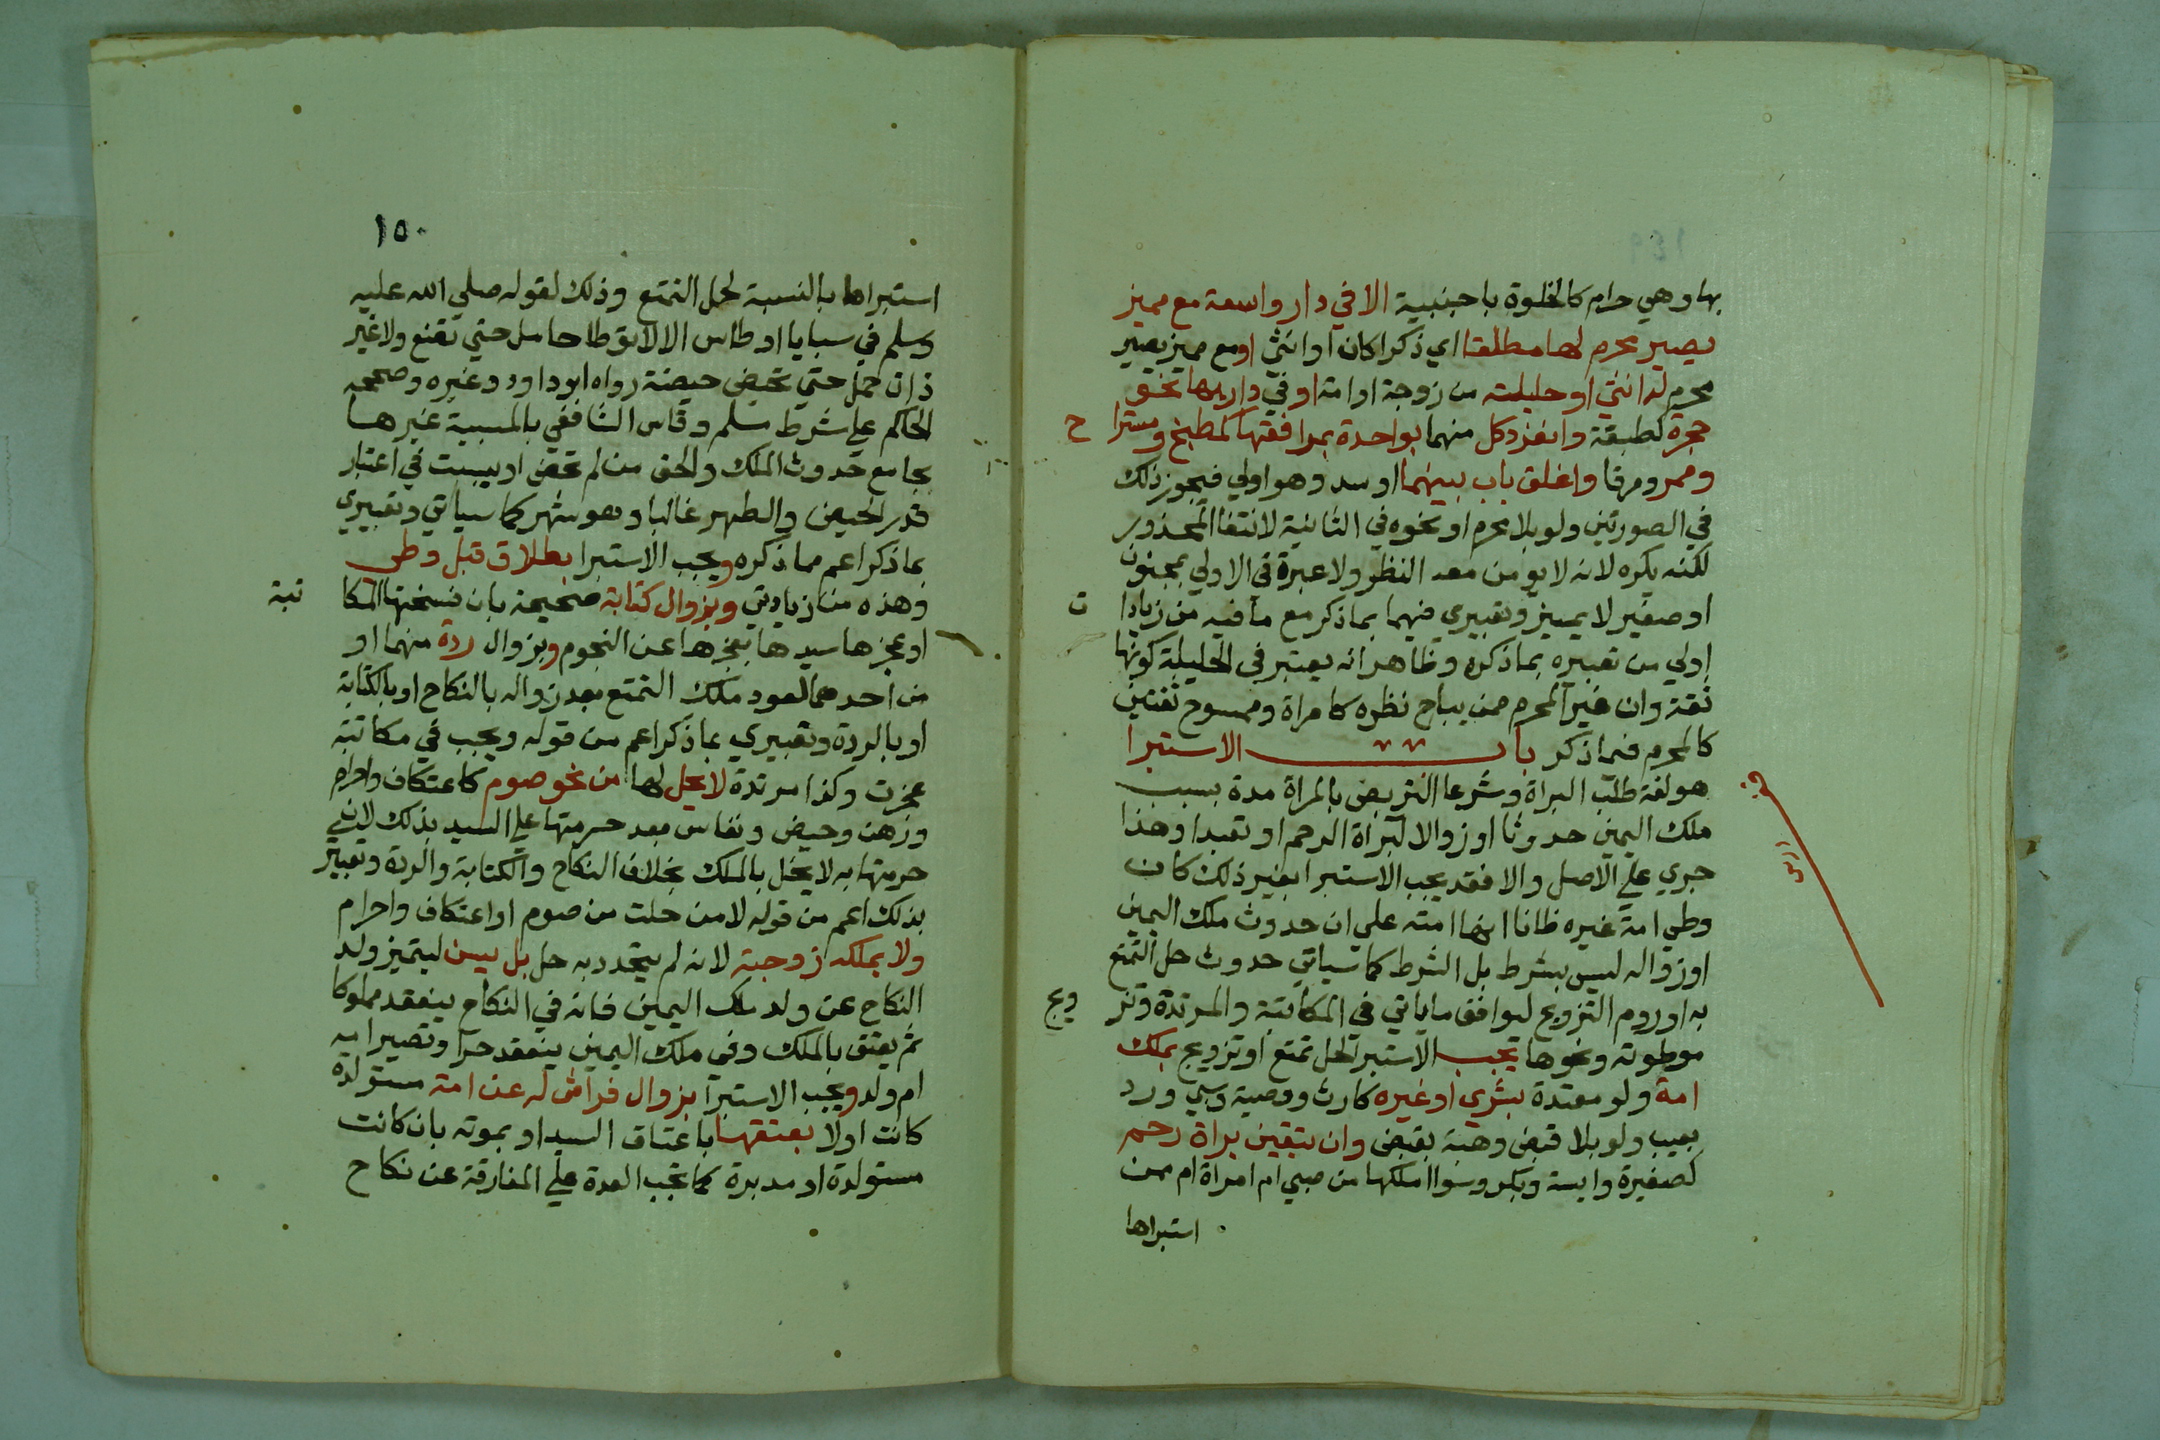 بها وهي حرام كالخلوة باجنبية الا في دار واسعة مع مميز
بصير محرم لها مطلقا اي ذكرا كان او انثى او مع مميز بصير
محرم له انثي او حليلته من زوجة او امة او في دار بها نحو
حجرة كطبقة وانفرد كل منهما بواحدة بمرافقها كمطبخ ومسترا
ح
وممر ومرقا واغلق باب بينهما او سد وهو اولي فيجوز ذلك
في الصورتين ولو بلا محرم او نحوه في الثانية لانتفا المحذور
لكنه يكره لانه لا يومن معه النظر ولا عبرة في الاولي بمجنون
او صغير لا يميز وتعبيري فيهما بما ذكر مع ما فيه من زيادا
ت
اولي من تعبيره بما ذكره وظاهر انه يعتبر في الحليلة كونها
ثقة وان غير المحرم ممن يباح نظره كامراة وممسوح ثقتين
كالمحرم فيما ذكر باب الاستبرا
هو لغة طلب البراة وشرعا التربص بالمراة مدة بسبب
ملك اليمين حدوثا او زوالا لبراة الرحم او تعبدا وهذا
جري علي الاصل والا فقد يجب الاستبرا بغير ذلك كان
وطي امة غيره ظانا انها امته علي ان حدوث ملك اليمين
او زواله ليس بشرط بل الشرط كما سياتي حدوث حل التمتع
به او روم التزويج ليوافق ما ياتي في المكاتبة والمرتدة وتز
ويج
موطوته ونحوها يجب الاستبرا لحل تمتع او تزويج بملك
امة ولو معتدة بشري او غيره كارث ووصية وسبي ورد
بعيب ولو بلا قبض وهبة بقبض وان تيقن براة رحم
كصغيرة وايسة وبكر وسوا املكها من صبي ام امراة ام ممن
استبراها
١٥٠
استبراها بالنسبة لحل التمتع وذلك لقوله صلي الله عليه
وسلم في سبايا اوطاس الا لا توطا حامل حتي تضع ولا غير
ذات حمل حتي تحيض حيضة رواه ابو داود وغيره وصححه
الحاكم علي شرط مسلم وقاس الشافعي بالمسبية غيرها
بجامع حدوث الملك والحق من لم تحض او يبست في اعتبار
قدر الحيض والطهر غالبا وهو شهر كما سياتي وتعبيري
بما ذكر اعم مما ذكره ويجب الاستبرا بطلاق قبل وطي
وهذه من زيادتي وبزوال كتابة صحيحة بان فسختها المكا
تبة
او عجزها سيدها بعجزها عن النجوم وبزوال ردة منهما او
من احدهما لعود ملك التمتع بعد زواله بالنكاح او بالكتابة
او بالردة وتعبيري بما ذكر اعم من قوله ويجب في مكاتبة
عجزت وكذا مرتدة لا بحل لها من نحو صوم كاعتكاف واحرام
ورهن وحيض ونفاس بعد حرمتها علي السيد بذلك لان
حرمتها به لا تخل بالملك بخلاف النكاح والكتابة والردة وتعبير
بذلك اعم من قوله لا من حلت من صوم او اعتكاف واحرام
ولا بملكه زوجته لانه لم يتجدد به حل بل يسن ليتميز ولد
النكاح عن ولد ملك اليمين فانه في النكاح ينعقد مملوكا
ثم يعتق بالملك وفي ملك اليمين ينعقد حرا وتصير امه
ام ولد ويجب الاستبرا بزوال فراش له عن امة مستولدة
كانت اولا بعتقها باعتاق السيد او بموته بان كانت
مستولدة او مدبرة كما تجب العدة علي المفارقة عن نكاح